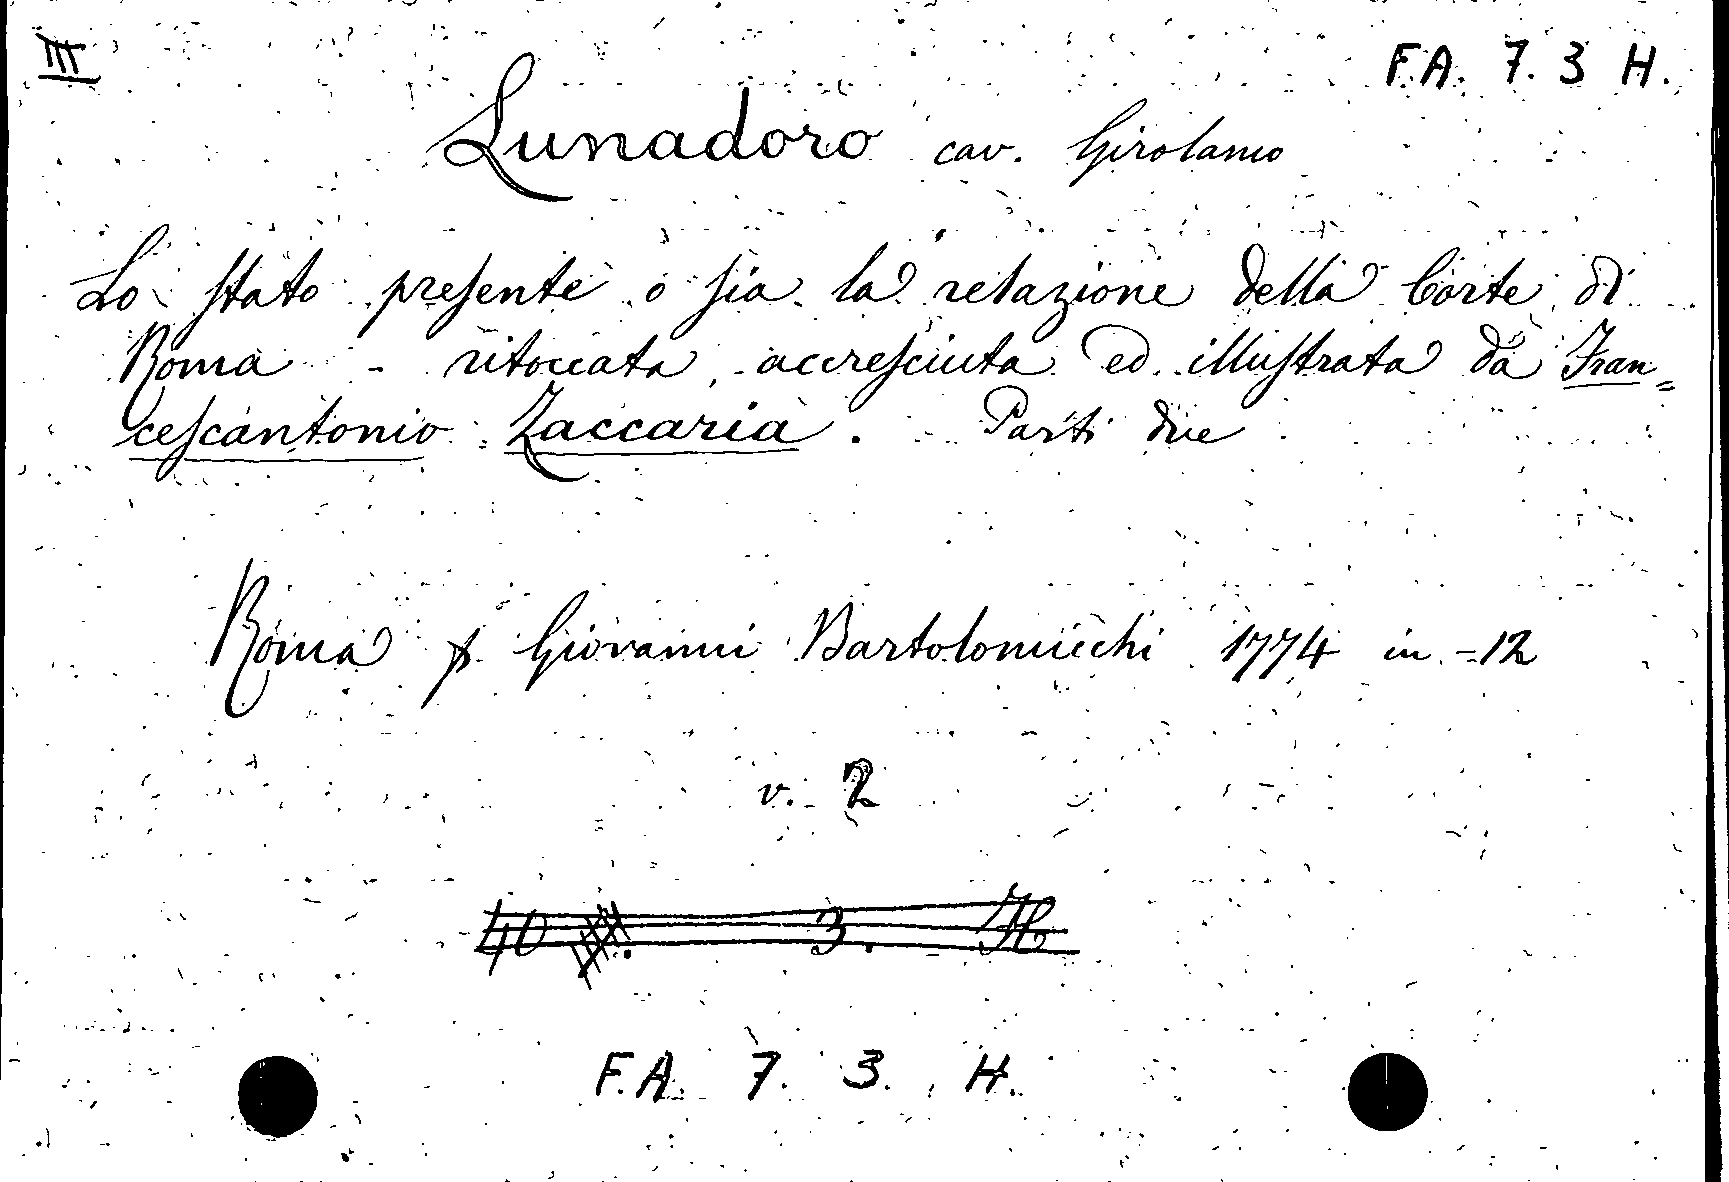 III
F.A. 7. 3 H.
Lunadoro cav. Girolamo
Lo stato presente o sia la relazione della Corte di
Roma - ritoccata, accresciuta ed illustrata da Fran=
cescantonio Zaccaria. Parti due
Roma p. Giovanni Bartolomicchi 1774 in-12
v. 2
40 3. H
F.A. 7. 3. H.